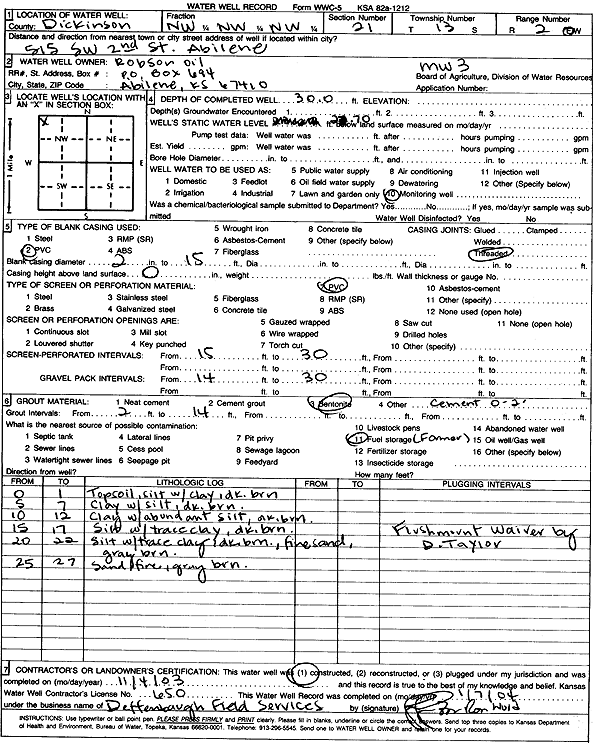 WATER WELL RECORD Form WWC-5 KSA 82a-1212
1 LOCATION OF WATER WELL: Fraction Section Number Township Number Range Number
County: Dickinson NW ¼ NW ¼ NW ¼ 21 T 13 S R 2 E/W
Distance and direction from nearest town or city street address of well if located within city?
515 SW 2nd St. Abilene
2 WATER WELL OWNER: Robson Oil
RR#, St. Address, Box # : P.O. Box 694 MW3 Board of Agriculture, Division of Water Resources
City, State, ZIP Code : Abilene, KS 67410 Application Number:
3 LOCATE WELL'S LOCATION WITH AN "X" IN SECTION BOX:
N
X
NW NE
W E
SW SE
S
1 Mile
4 DEPTH OF COMPLETED WELL 30.0 ft. ELEVATION:
Depth(s) Groundwater Encountered 1. ft. 2. ft. 3. ft.
WELL'S STATIC WATER LEVEL ft. below land surface measured on mo/day/yr
Pump test data: Well water was ft. after hours pumping gpm
Est. Yield gpm: Well water was ft. after hours pumping gpm
Bore Hole Diameter in. to ft., and in. to ft.
WELL WATER TO BE USED AS: 5 Public water supply 8 Air conditioning 11 Injection well
1 Domestic 3 Feedlot 6 Oil field water supply 9 Dewatering 12 Other (Specify below)
2 Irrigation 4 Industrial 7 Lawn and garden only 10 Monitoring well
Was a chemical/bacteriological sample submitted to Department? Yes No ; If yes, mo/day/yr sample was submitted
Water Well Disinfected? Yes No
5 TYPE OF BLANK CASING USED: 5 Wrought iron 8 Concrete tile CASING JOINTS: Glued Clamped
1 Steel 3 RMP (SR) 6 Asbestos-Cement 9 Other (specify below) Welded
2 PVC 4 ABS 7 Fiberglass Threaded
Blank casing diameter 2 in. to 15 ft., Dia in. to ft., Dia in. to ft.
Casing height above land surface 0 in., weight lbs./ft. Wall thickness or gauge No.
TYPE OF SCREEN OR PERFORATION MATERIAL: 7 PVC 10 Asbestos-cement
1 Steel 3 Stainless steel 5 Fiberglass 8 RMP (SR) 11 Other (specify)
2 Brass 4 Galvanized steel 6 Concrete tile 9 ABS 12 None used (open hole)
SCREEN OR PERFORATION OPENINGS ARE: 5 Gauzed wrapped 8 Saw cut 11 None (open hole)
1 Continuous slot 3 Mill slot 6 Wire wrapped 9 Drilled holes
2 Louvered shutter 4 Key punched 7 Torch cut 10 Other (specify)
SCREEN-PERFORATED INTERVALS: From 15 ft. to 30 ft., From ft. to ft.
From ft. to ft., From ft. to ft.
GRAVEL PACK INTERVALS: From 14 ft. to 30 ft., From ft. to ft.
From ft. to ft., From ft. to ft.
6 GROUT MATERIAL: 1 Neat cement 2 Cement grout 3 Bentonite 4 Other Cement 0-2'
Grout Intervals: From 2 ft. to 14 ft., From ft. to ft., From ft. to ft.
What is the nearest source of possible contamination: 10 Livestock pens 14 Abandoned water well
1 Septic tank 4 Lateral lines 7 Pit privy 11 Fuel storage (Former) 15 Oil well/Gas well
2 Sewer lines 5 Cess pool 8 Sewage lagoon 12 Fertilizer storage 16 Other (specify below)
3 Watertight sewer lines 6 Seepage pit 9 Feedyard 13 Insecticide storage
Direction from well? How many feet?
FROM TO LITHOLOGIC LOG FROM TO PLUGGING INTERVALS
0 1 Topsoil, silt w/ clay, dk. brn
5 7 Clay w/ silt, dk. brn
10 12 Clay w/ abundant silt, dk. brn
15 17 Silt w/ trace clay, dk. brn. Flushmount Waiver by
20 22 Silt w/ trace clay, dk. brn., fine sand, D. Taylor
gray brn.
25 27 Sand, fine, gray brn.
7 CONTRACTOR'S OR LANDOWNER'S CERTIFICATION: This water well was (1) constructed, (2) reconstructed, or (3) plugged under my jurisdiction and was
completed on (mo/day/year) 11/4/03 and this record is true to the best of my knowledge and belief. Kansas
Water Well Contractor's License No. 650 This Water Well Record was completed on (mo/day/yr) 1/7/04
under the business name of Deffenbaugh Field Services by (signature)
INSTRUCTIONS: Use typewriter or ball point pen. PLEASE PRESS FIRMLY and PRINT clearly. Please fill in blanks, underline or circle the correct answers. Send top three copies to Kansas Department
of Health and Environment, Bureau of Water, Topeka, Kansas 66620-0001. Telephone: 913-296-5545. Send one to WATER WELL OWNER and retain one for your records.